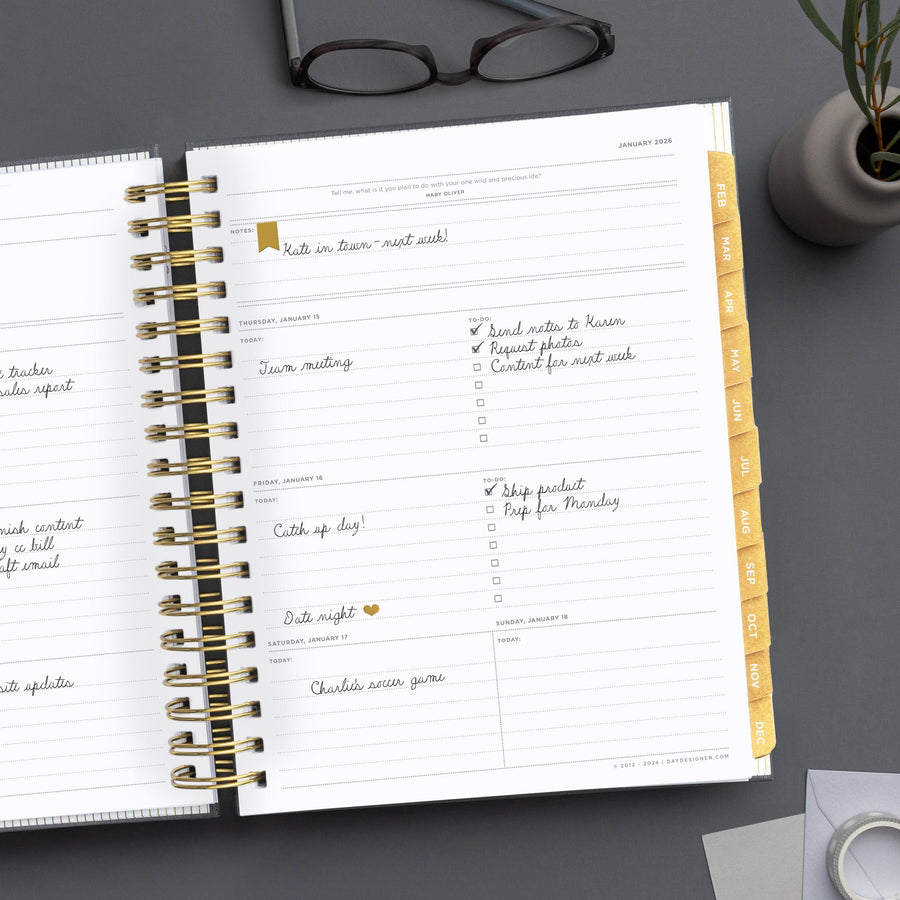 tracker
sales report
content
cc bill
email
updates
JANUARY 2026
Tell me, what is it you plan to do with your one wild and precious life?
MARY OLIVER
NOTES:
Kate in town - next week!
THURSDAY, JANUARY 15
TODAY:
Team meeting
TO-DO:
Send notes to Karen
Request photos
Content for next week
FRIDAY, JANUARY 16
TODAY:
Catch up day!
Date night
TO-DO:
Ship product
Prep for Monday
SATURDAY, JANUARY 17
TODAY:
Charlie's soccer game
SUNDAY, JANUARY 18
TODAY:
© 2012 - 2024 | DAYDESIGNER.COM
FEB
MAR
APR
MAY
JUN
JUL
AUG
SEP
OCT
NOV
DEC